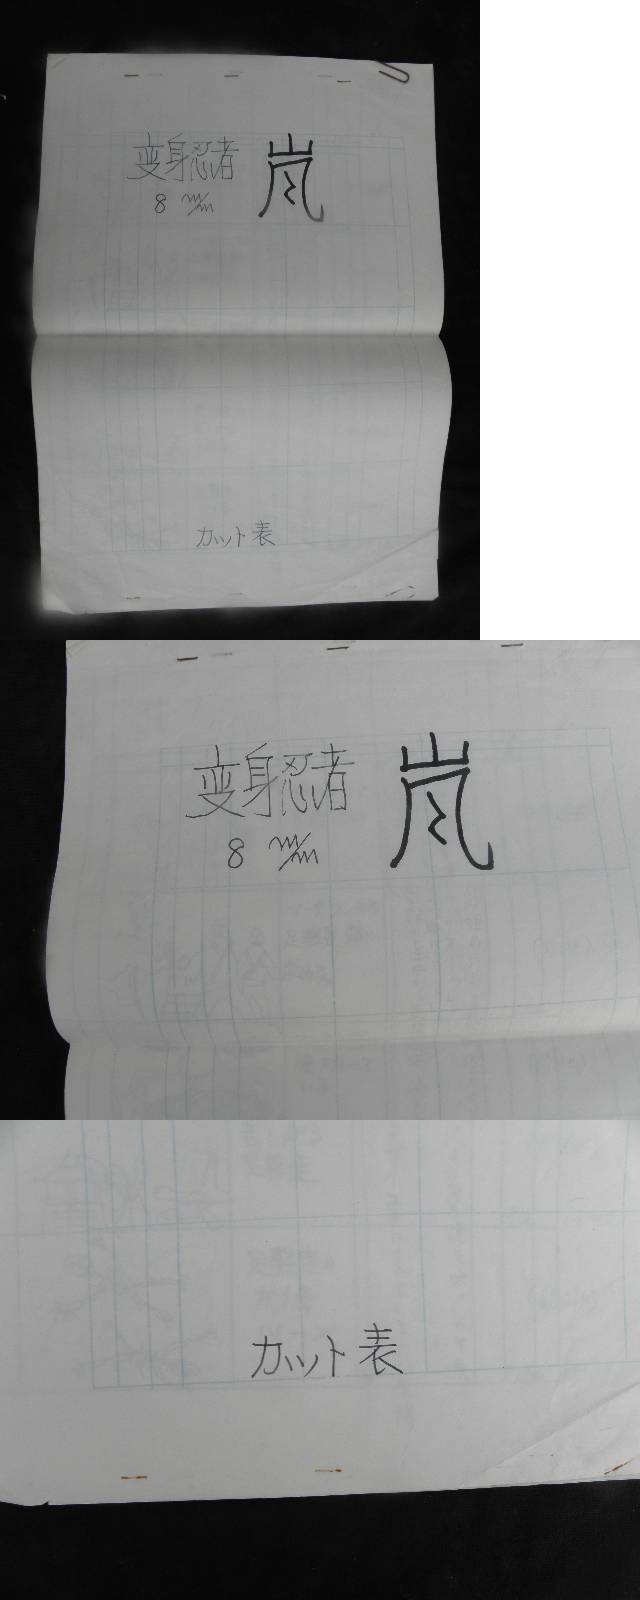 変身忍者 嵐
8 m/m
カット表
変身忍者 嵐
8 m/m
カット表